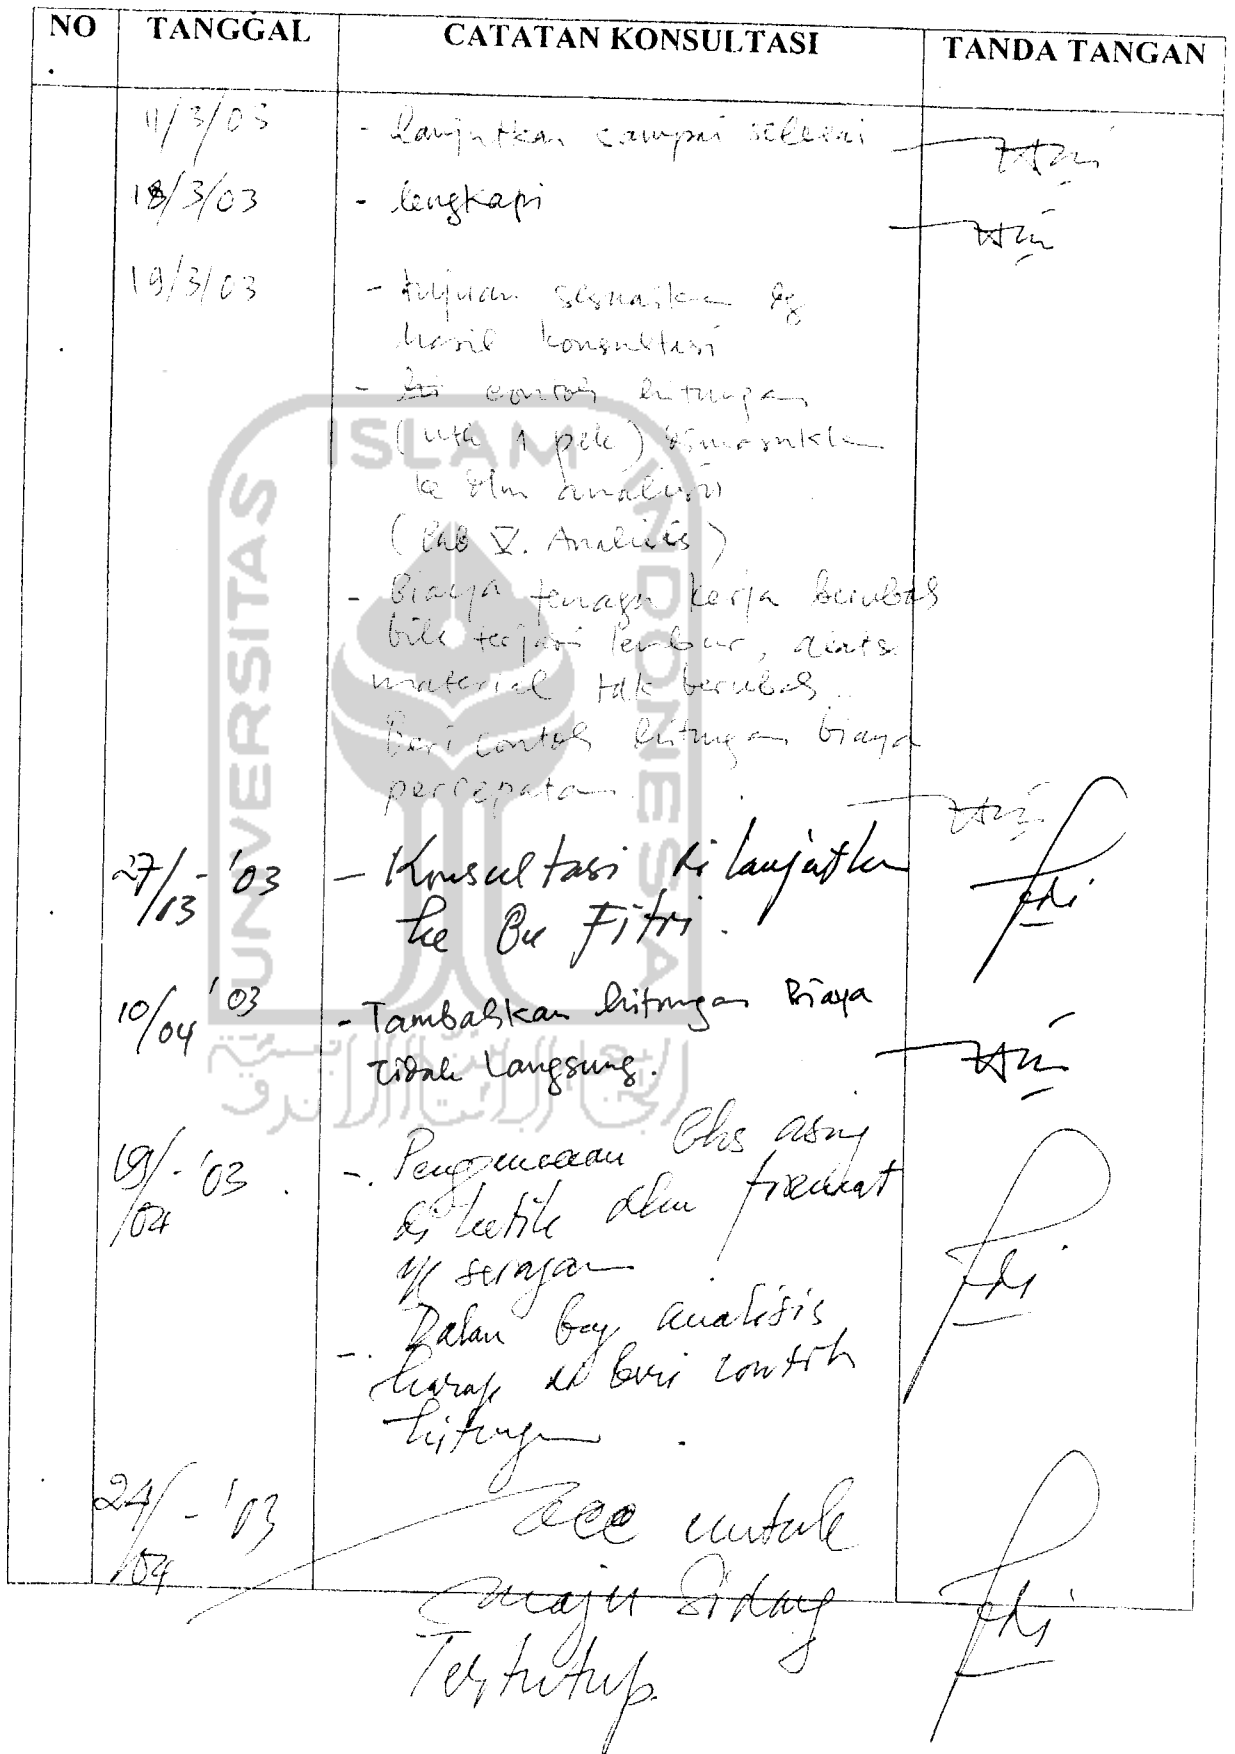 NO. TANGGAL CATATAN KONSULTASI TANDA TANGAN
11/3/03 - Lanjutkan sampai selesai
18/3/03 - lengkapi
19/3/03 - tujuan sesuaikan dg
hasil konsultasi
- contoh hitungan
(utk 1 pek) dimasukkan
ke dlm analisis
(Bab V. Analisis)
- Biaya tenaga kerja berubah
bila terjadi lembur,
material tdk berubah.
Beri contoh hitungan biaya
percepatan.
27/03-'03 - Konsultasi dilanjutkan
ke Bu Fitri.
10/04 '03 - Tambahkan hitungan Biaya
tidak langsung.
19/04-'03. -. Penggunaan bhs asing
di ketik dlm format
yg seragam
-. Dalam bag analisis
harap di beri contoh
hitungan.
24/04-'03 acc untuk
maju Sidang
Tertutup.
UNIVERSITAS ISLAM INDONESIA